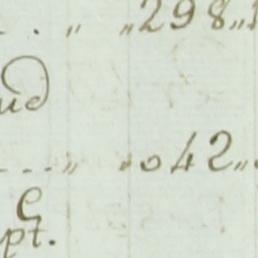 . . „ „ 298 „
ud
. . . . „ „ 042 „
C
pt.